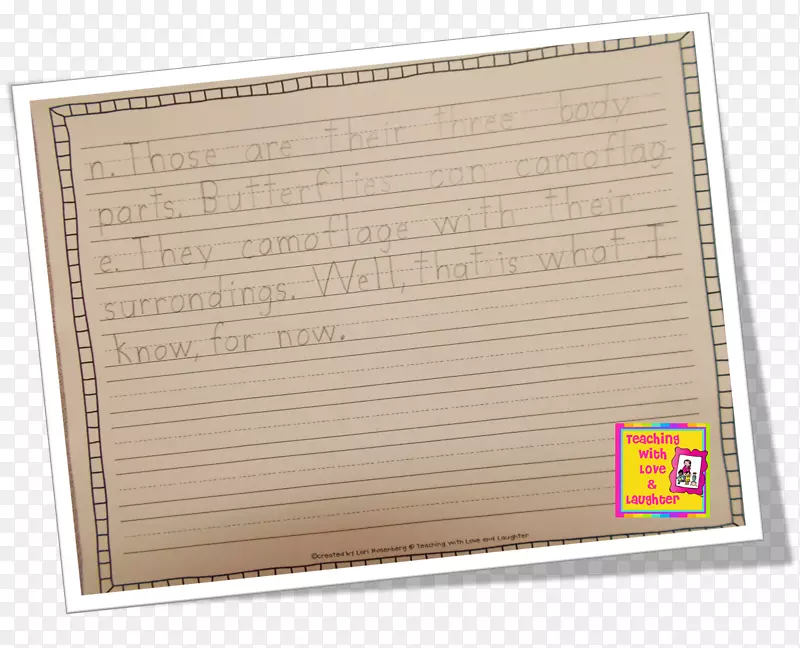 n. Those are their three body
parts. Butterflies can camoflag
e. They camoflage with their
surrondings. Well, that is what I
know, for now.
©created by Lori Rosenberg © Teaching with Love and Laughter
Teaching
with
Love
&
Laughter